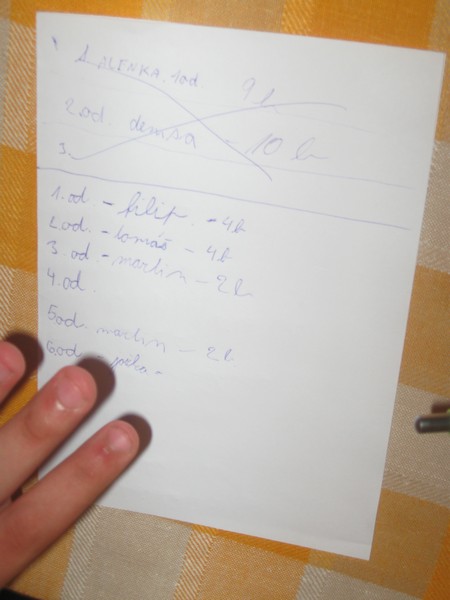 1. ALENKA. 1od 9 b
2.od. denisa - 10 b
3.
1.od. - filip. - 4b
2.od. - tomáš - 4b
3.od - martin - 2b
4.od.
5od. martin - 2b
6.od. -